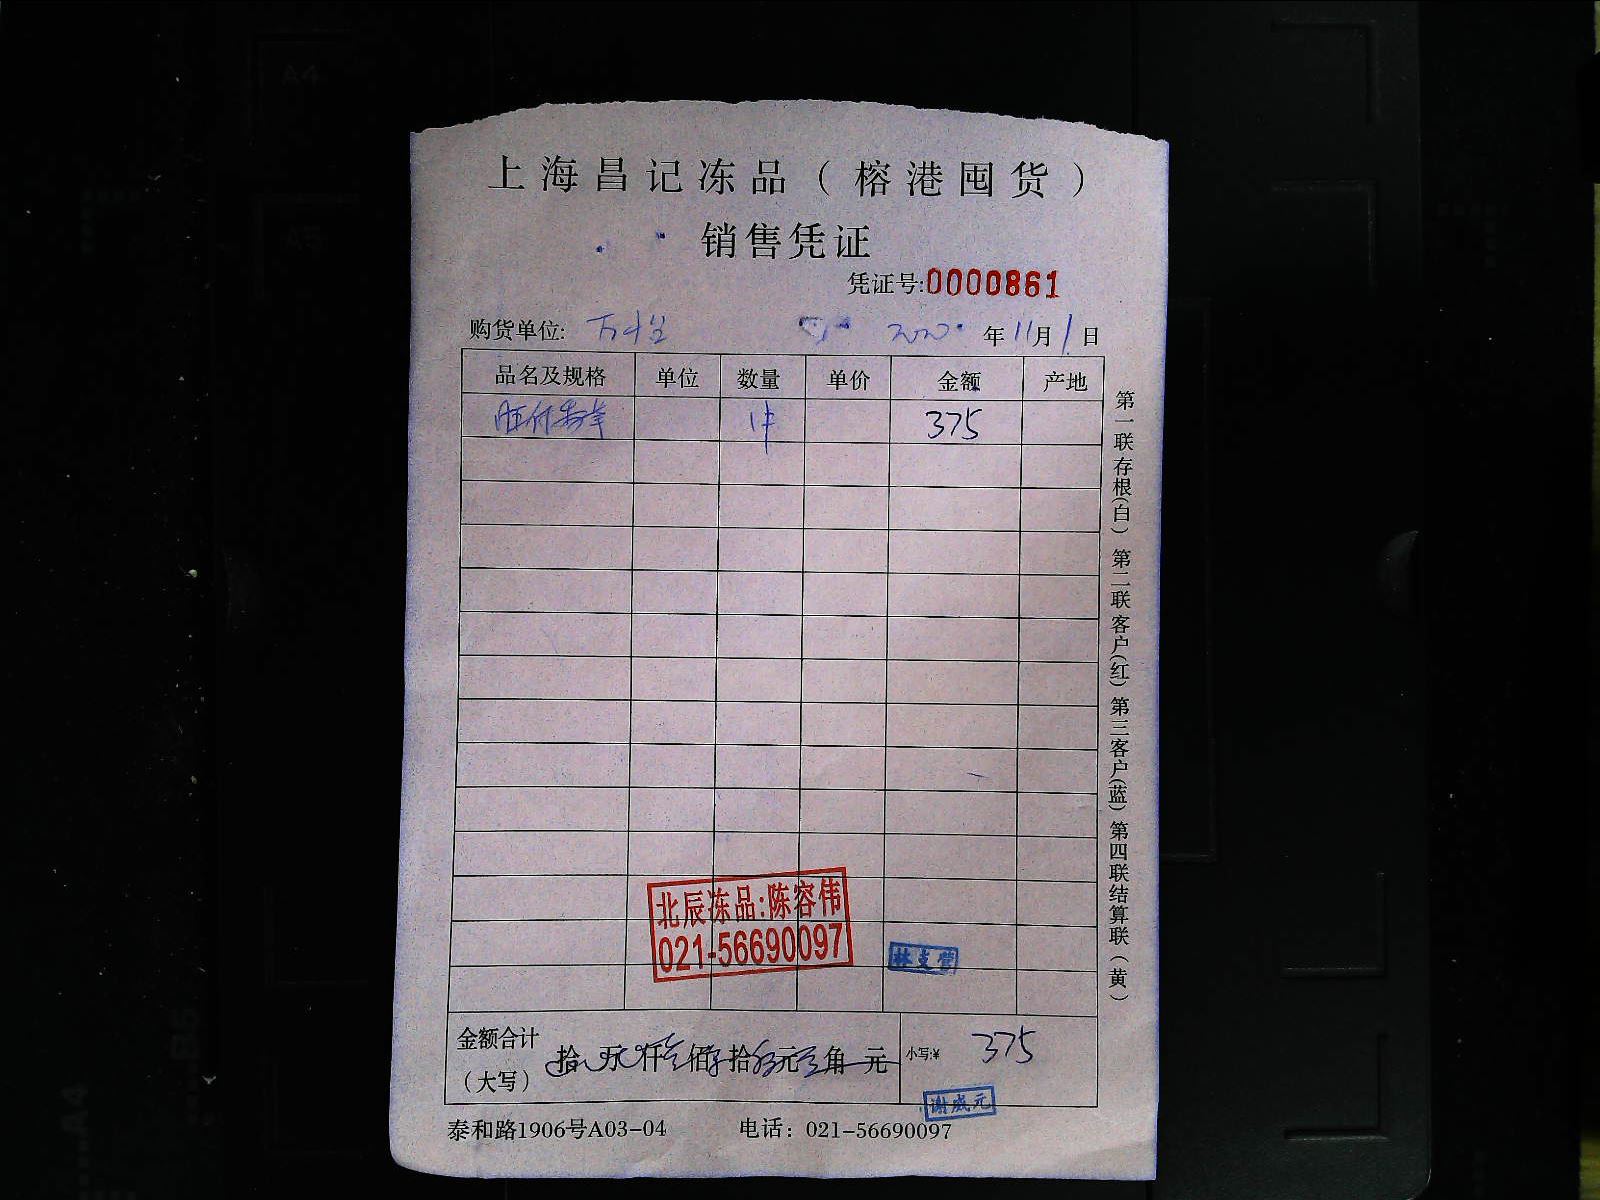 上海昌记冻品（榕港囤货）
销售凭证
凭证号:0000861
购货单位: 2020 年 11 月 1 日
品名及规格 单位 数量 单价 金额 产地
1件 375
北辰冻品:陈容伟
021-56690097
金额合计（大写） 拾 万 仟 佰 拾 元 角 元 小写:¥ 375
谢威元
泰和路1906号A03-04 电话：021-56690097
第一联存根(白) 第二联客户(红) 第三客户(蓝) 第四联结算联（黄）